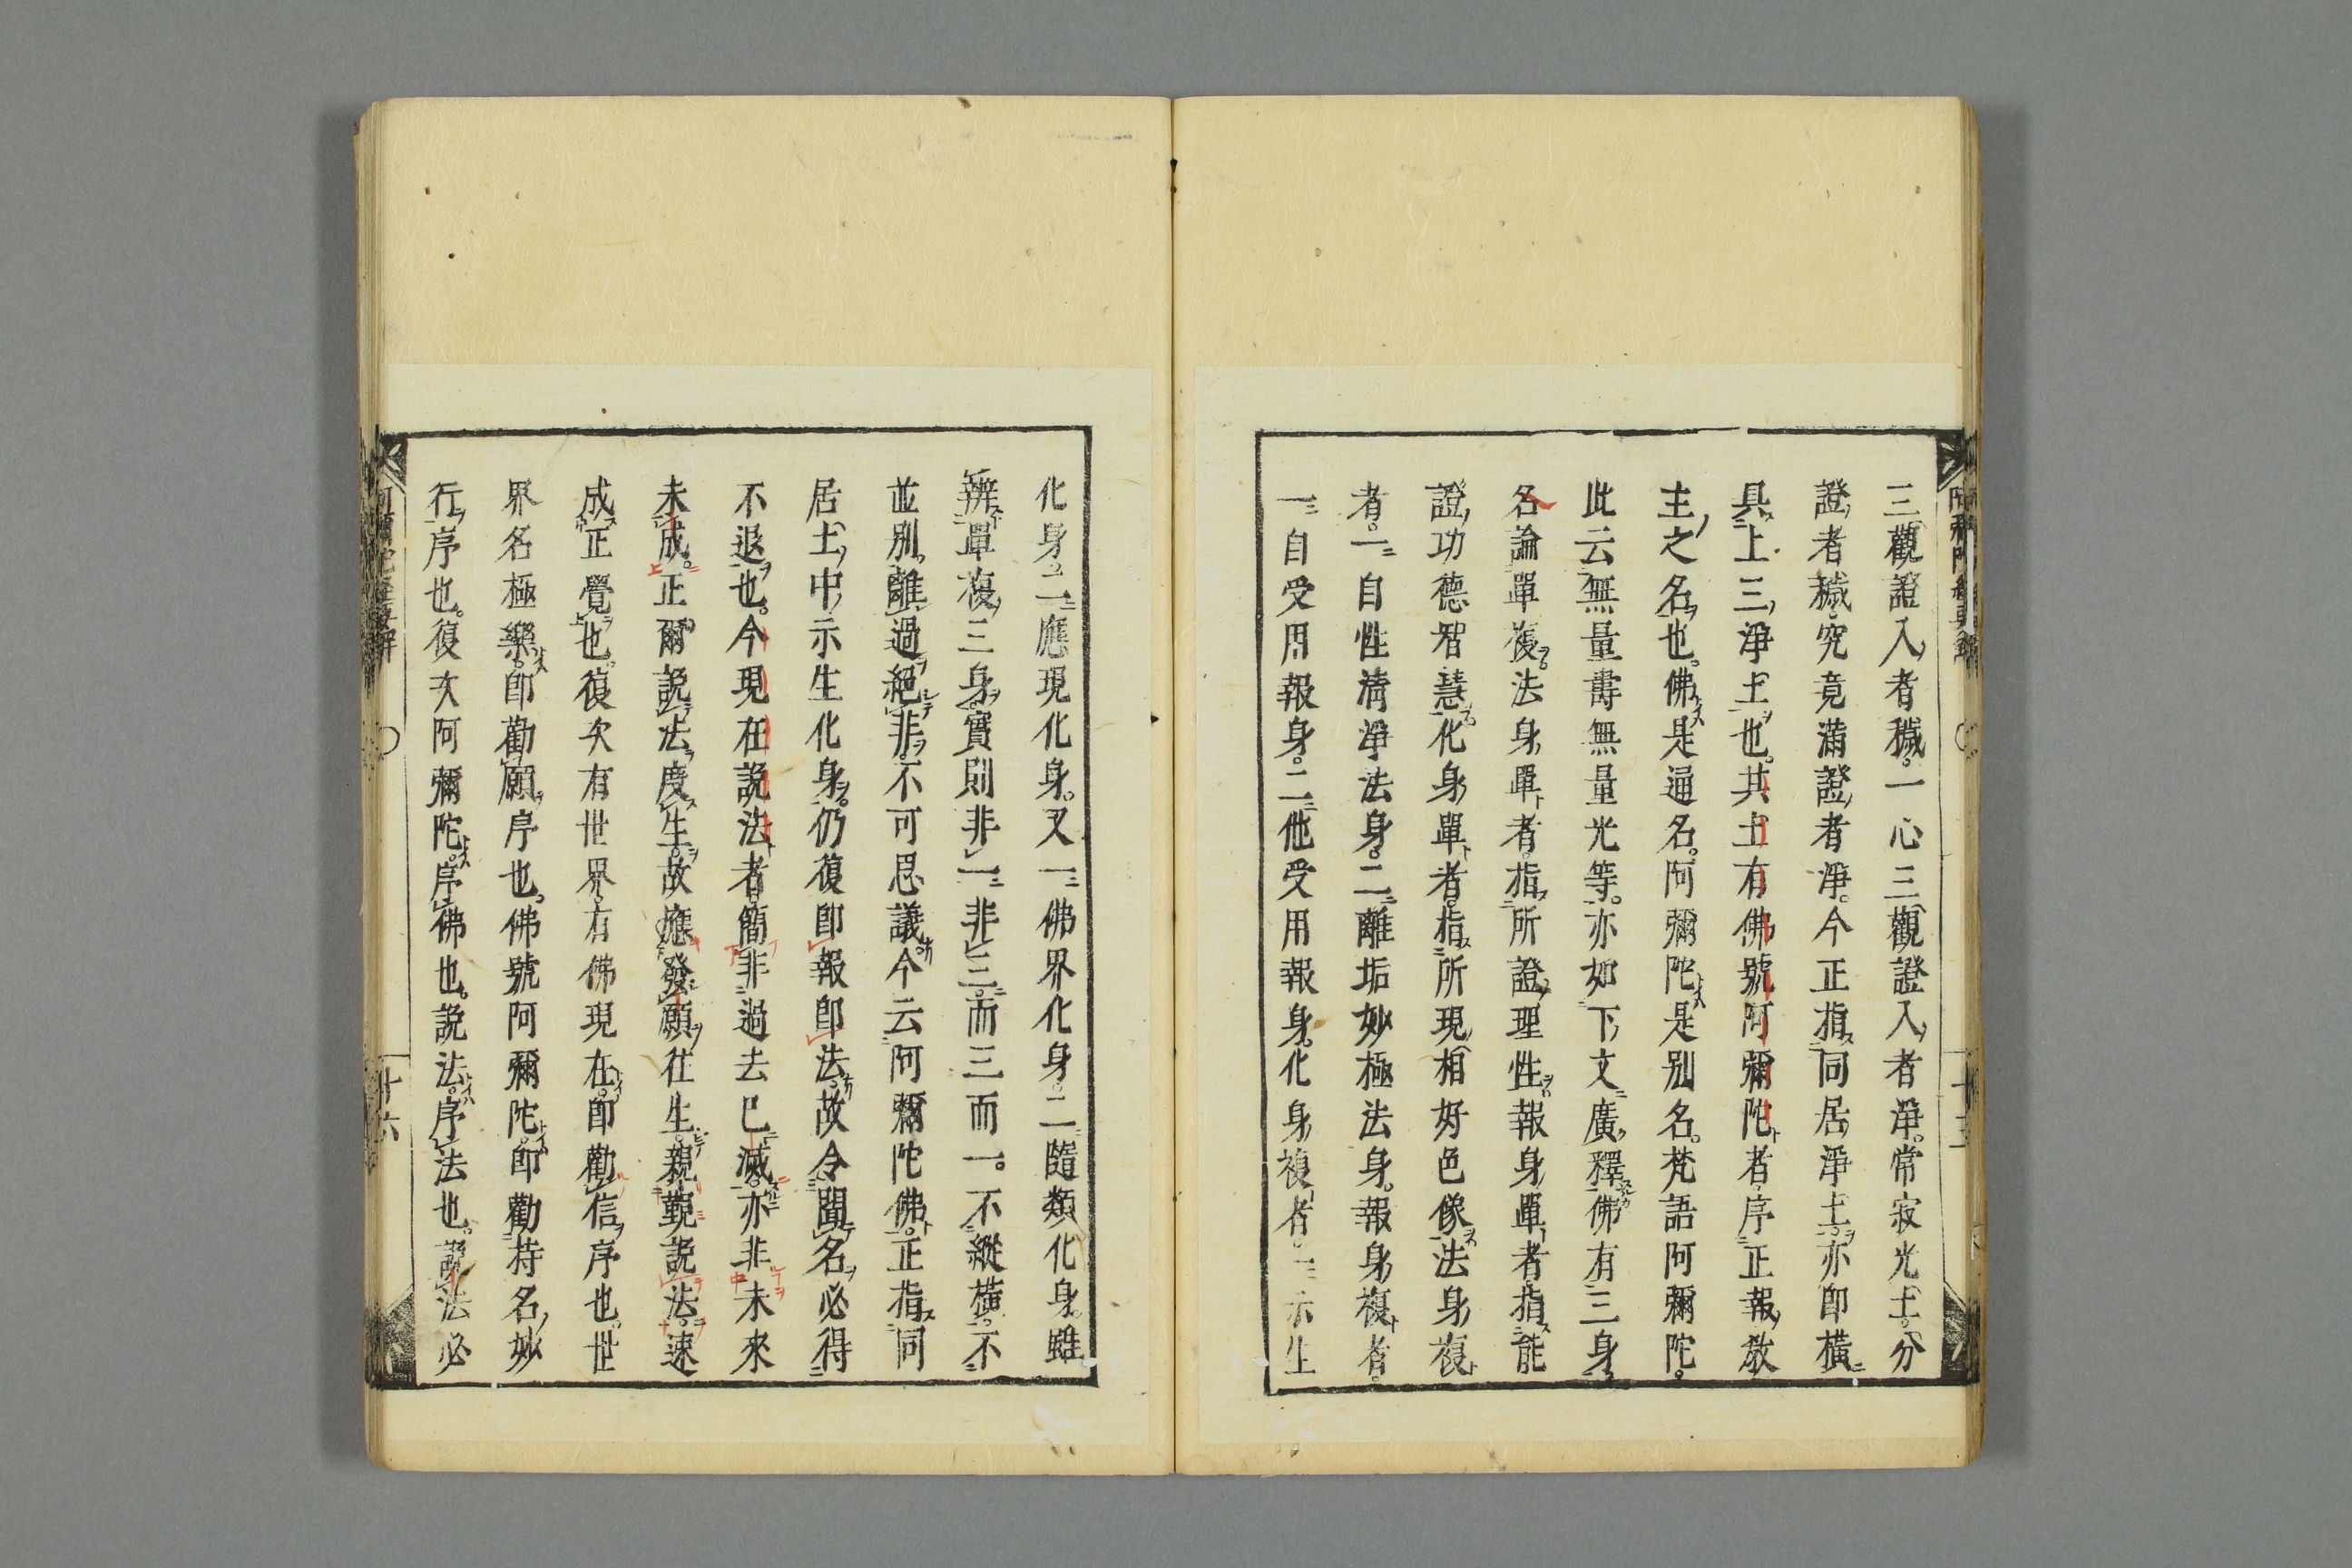 三觀證入者穢。一心三觀證入者淨。常寂光土。分
證者穢。究竟滿證者淨。今正指同居淨土。亦卽橫
具上三淨土也。其土有佛號阿彌陀者序正報教
主之名也。佛是通名。阿彌陀是別名。梵語阿彌陀。
此云無量壽無量光等。亦如下文廣釋。佛有三身
各論單複。法身單者。指所證理性。報身單者。指能
證功德智慧。化身單者。指所現相好色像。法身複
者。一自性淸淨法身。二離垢妙極法身。報身複者。
一自受用報身。二他受用報身。化身複者。一示生
化身。二應現化身。又一佛界化身。二隨類化身。雖
辨單複三身。實則非一非三。而三而一。不縱橫。不
並別。離過絕非。不可思議。今云阿彌陀佛。正指同
居土中示生化身。仍復卽報卽法。故令聞名必得
不退也。今現在說法者。簡非過去已滅。亦非未來
未成。正爾說法度生。故應發願往生。親覲說法。速
成正覺也。復次有世界。有佛現在。卽勸信序也。世
界名極樂。卽勸願序也。佛號阿彌陀。卽勸持名妙
行序也。復次阿彌陀。序佛也。說法。序法也。說法必
阿彌陀經要解
十六